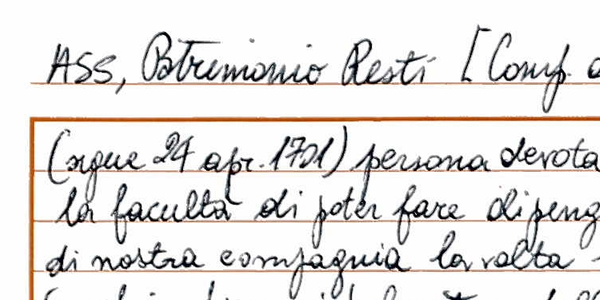 ASS, Patrimonio Resti [Comp.
(segue 24 apr. 1701) persona devota
la faculta di poter fare dipeng
di nostra compagnia la volta